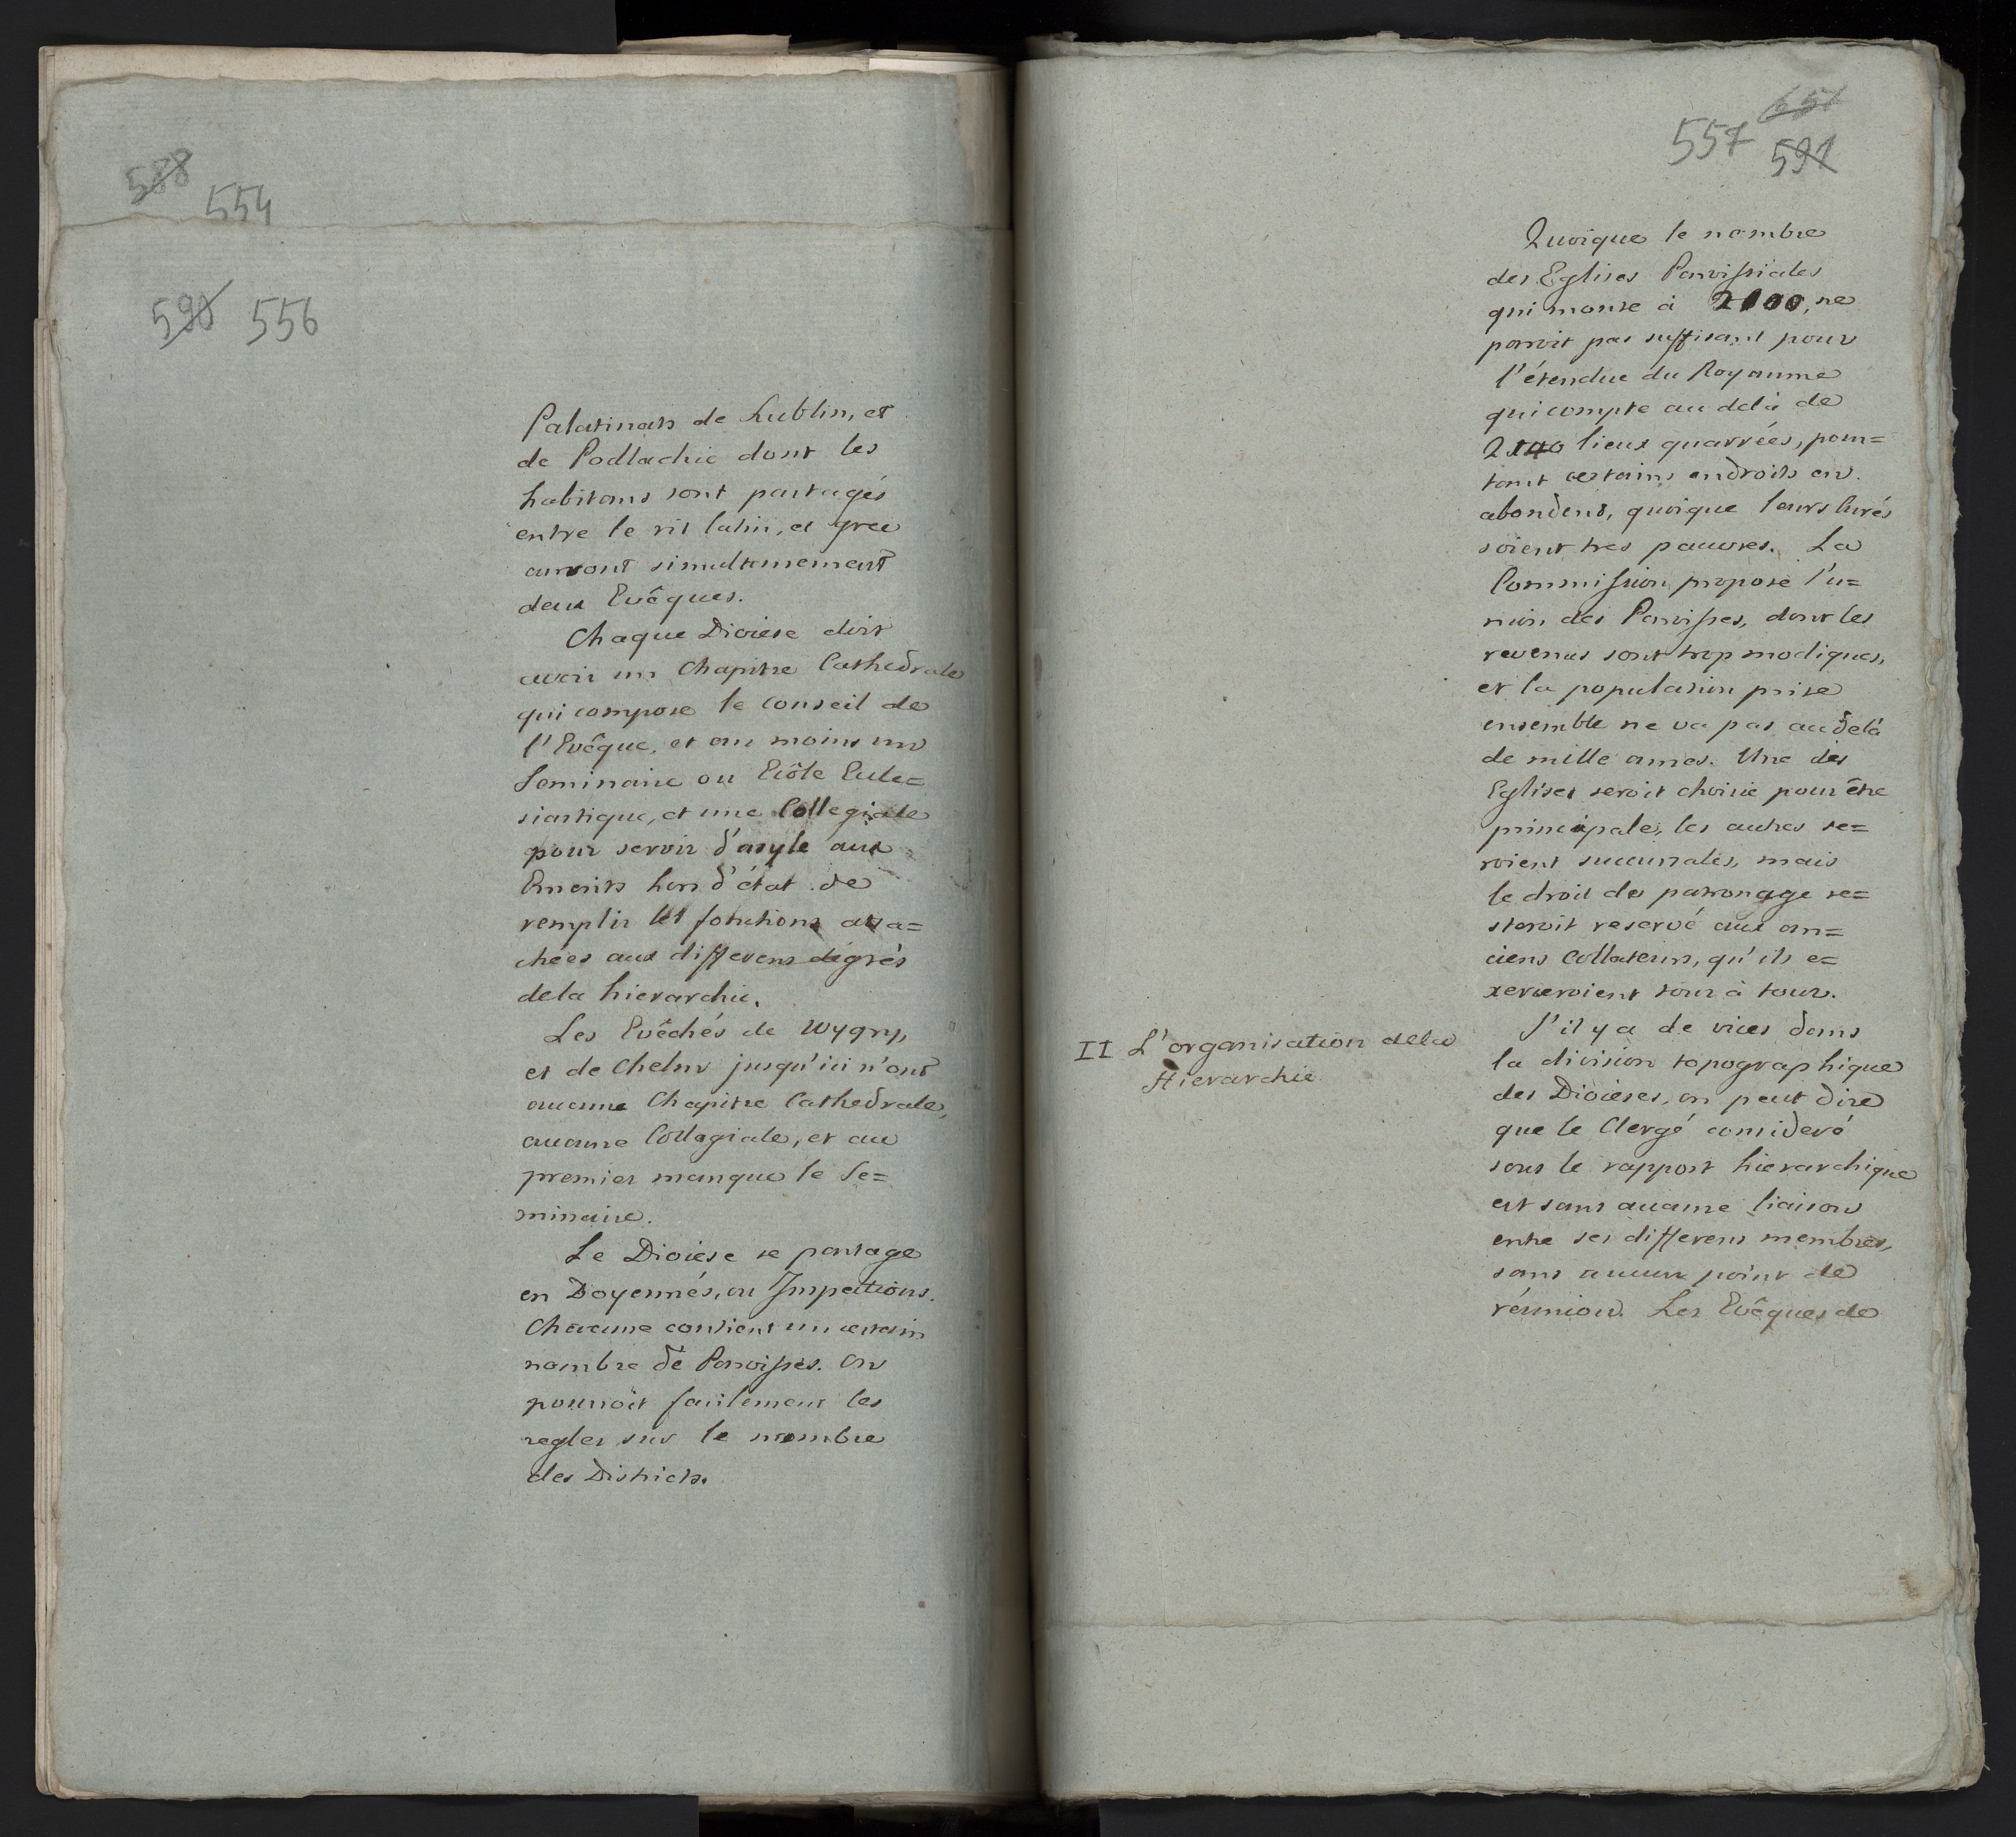 588
554
590 556
Palatinats de Lublin, et
de Podlachie dont les
habitans sont partagés
entre le rit latin, et grec
auront simultanement
deux Evêques.
Chaque Diocese doit
avoir un Chapitre Cathedrale
qui compose le conseil de
l'Evêque, et au moins un
Seminaire ou Ecôle Eccle=
siastique, et une Collegiale
pour servir d'asyle aux
Emerits hors d'état de
remplir les fonctions atta=
chées aux differens dégrés
dela hierarchie.
Les Evêchés de Wygry,
et de Chelm jusqu'ici n'ont
aucune Chapitre Cathedrale,
aucune Collegiale, et au
premier manque le Se=
minaire.
Le Diocese se partage
en Doyennés, ou Inspections.
Chacune contient un certain
nombre de Paroisses. On
pourroit facilement les
regler sur le nombre
des Districts.
651
557 591
Quoique le nombre
des Eglises Paroissiales
qui monte à 2100, ne
paroit pas suffisant pour
l'étendue du Royaume
qui compte au delà de
lieux quarrées, pour=
tant certains endroits en
abondent, quoique leurs Curés
soient tres pauvres. La
Commission propose l'u=
nion des Paroisses, dont les
revenus sont trop modiques,
et la population prise
ensemble ne va pas au delà
de mille ames. Une des
Eglises seroit choisie pour être
principale, les autres se=
roient succursales, mais
le droit de patronage re=
steroit reservé aux an=
ciens Collateurs, qu'ils e=
xerceroient tour à tour.
II L'organisation dela
Hierarchie
S'il y a de vices dans
la division topographique
des Dioceses, on peut dire
que le Clergé consideré
sous le rapport hierarchique
est sans aucune liaison
entre ses differens membres,
sans aucun point de
réunion. Les Evêques de